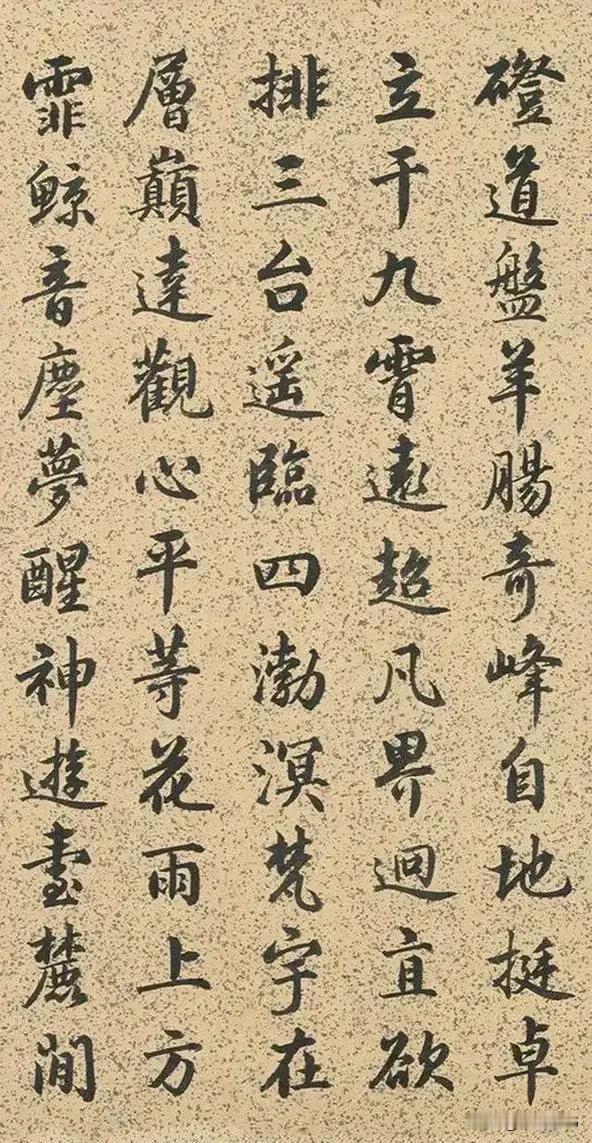 磴道盤羊腸奇峰自地挺卓
立干九霄遠超凡界迥直欲
排三台遥臨四渤溟梵宇在
層巔達觀心平等花雨上方
霏鯨音塵夢醒神遊臺麓間